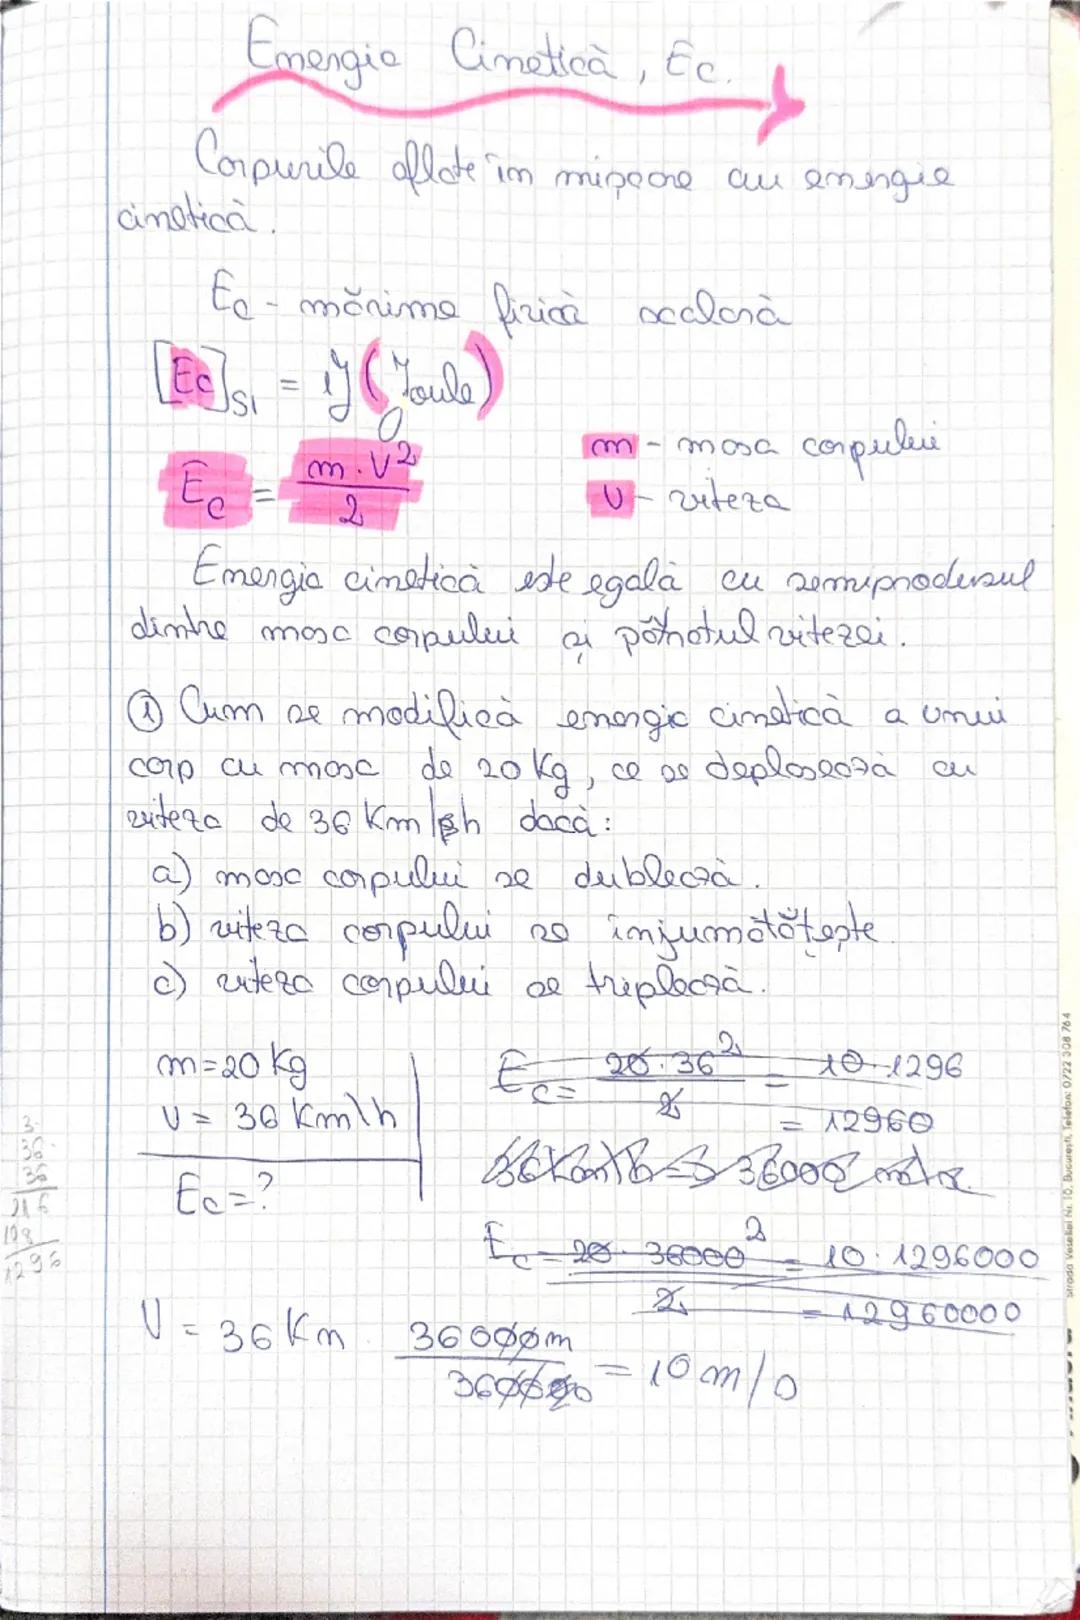 Energia Cinetică, Ec.
Corpurile aflate în mișcare au energie
cinetică.
Ec - mărime fizică scalară
[Ec]SI = 1J (Joule)
Ec = m·v²/2
m - masa corpului
v - viteza
Energia cinetică este egală cu semiprodusul
dintre masa corpului și pătratul vitezei.
① Cum se modifică energia cinetică a unui
corp cu masa de 20 Kg, ce se deplasează cu
viteza de 36 Km/h dacă:
a) masa corpului se dublează.
b) viteza corpului se înjumătățește
c) viteza corpului se triplează.
m=20 Kg
v = 36 Km\h
Ec=?
Ec = 20·36²/2 = 10·1296
= 12960
36Km\h => 36000
Ec = 20·36000²/2 = 10·1296000
= 12960000
3
36·
36
216
108
1296
V = 36 Km 36000m/3600 = 10 m/s
Strada Veseliei Nr. 10, Bucuresti, Telefon: 0722 308 764